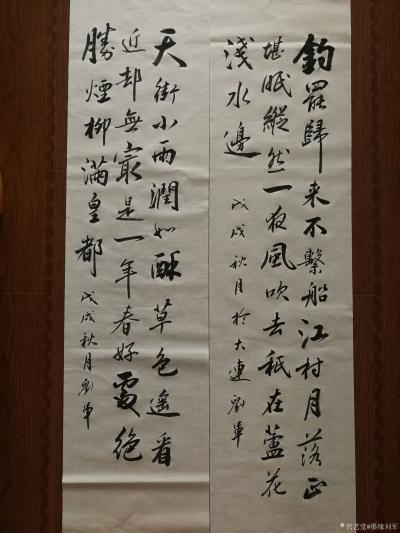 釣罷歸来不繫船江村月落正
堪眠縱然一夜風吹去秖在蘆花
淺水邊
戊戌秋月於大連劉軍
天街小雨潤如酥草色遙看
近却無最是一年春好處絶
勝煙柳滿皇都
戊戌秋月劉軍
兴艺堂@墨缘刘军